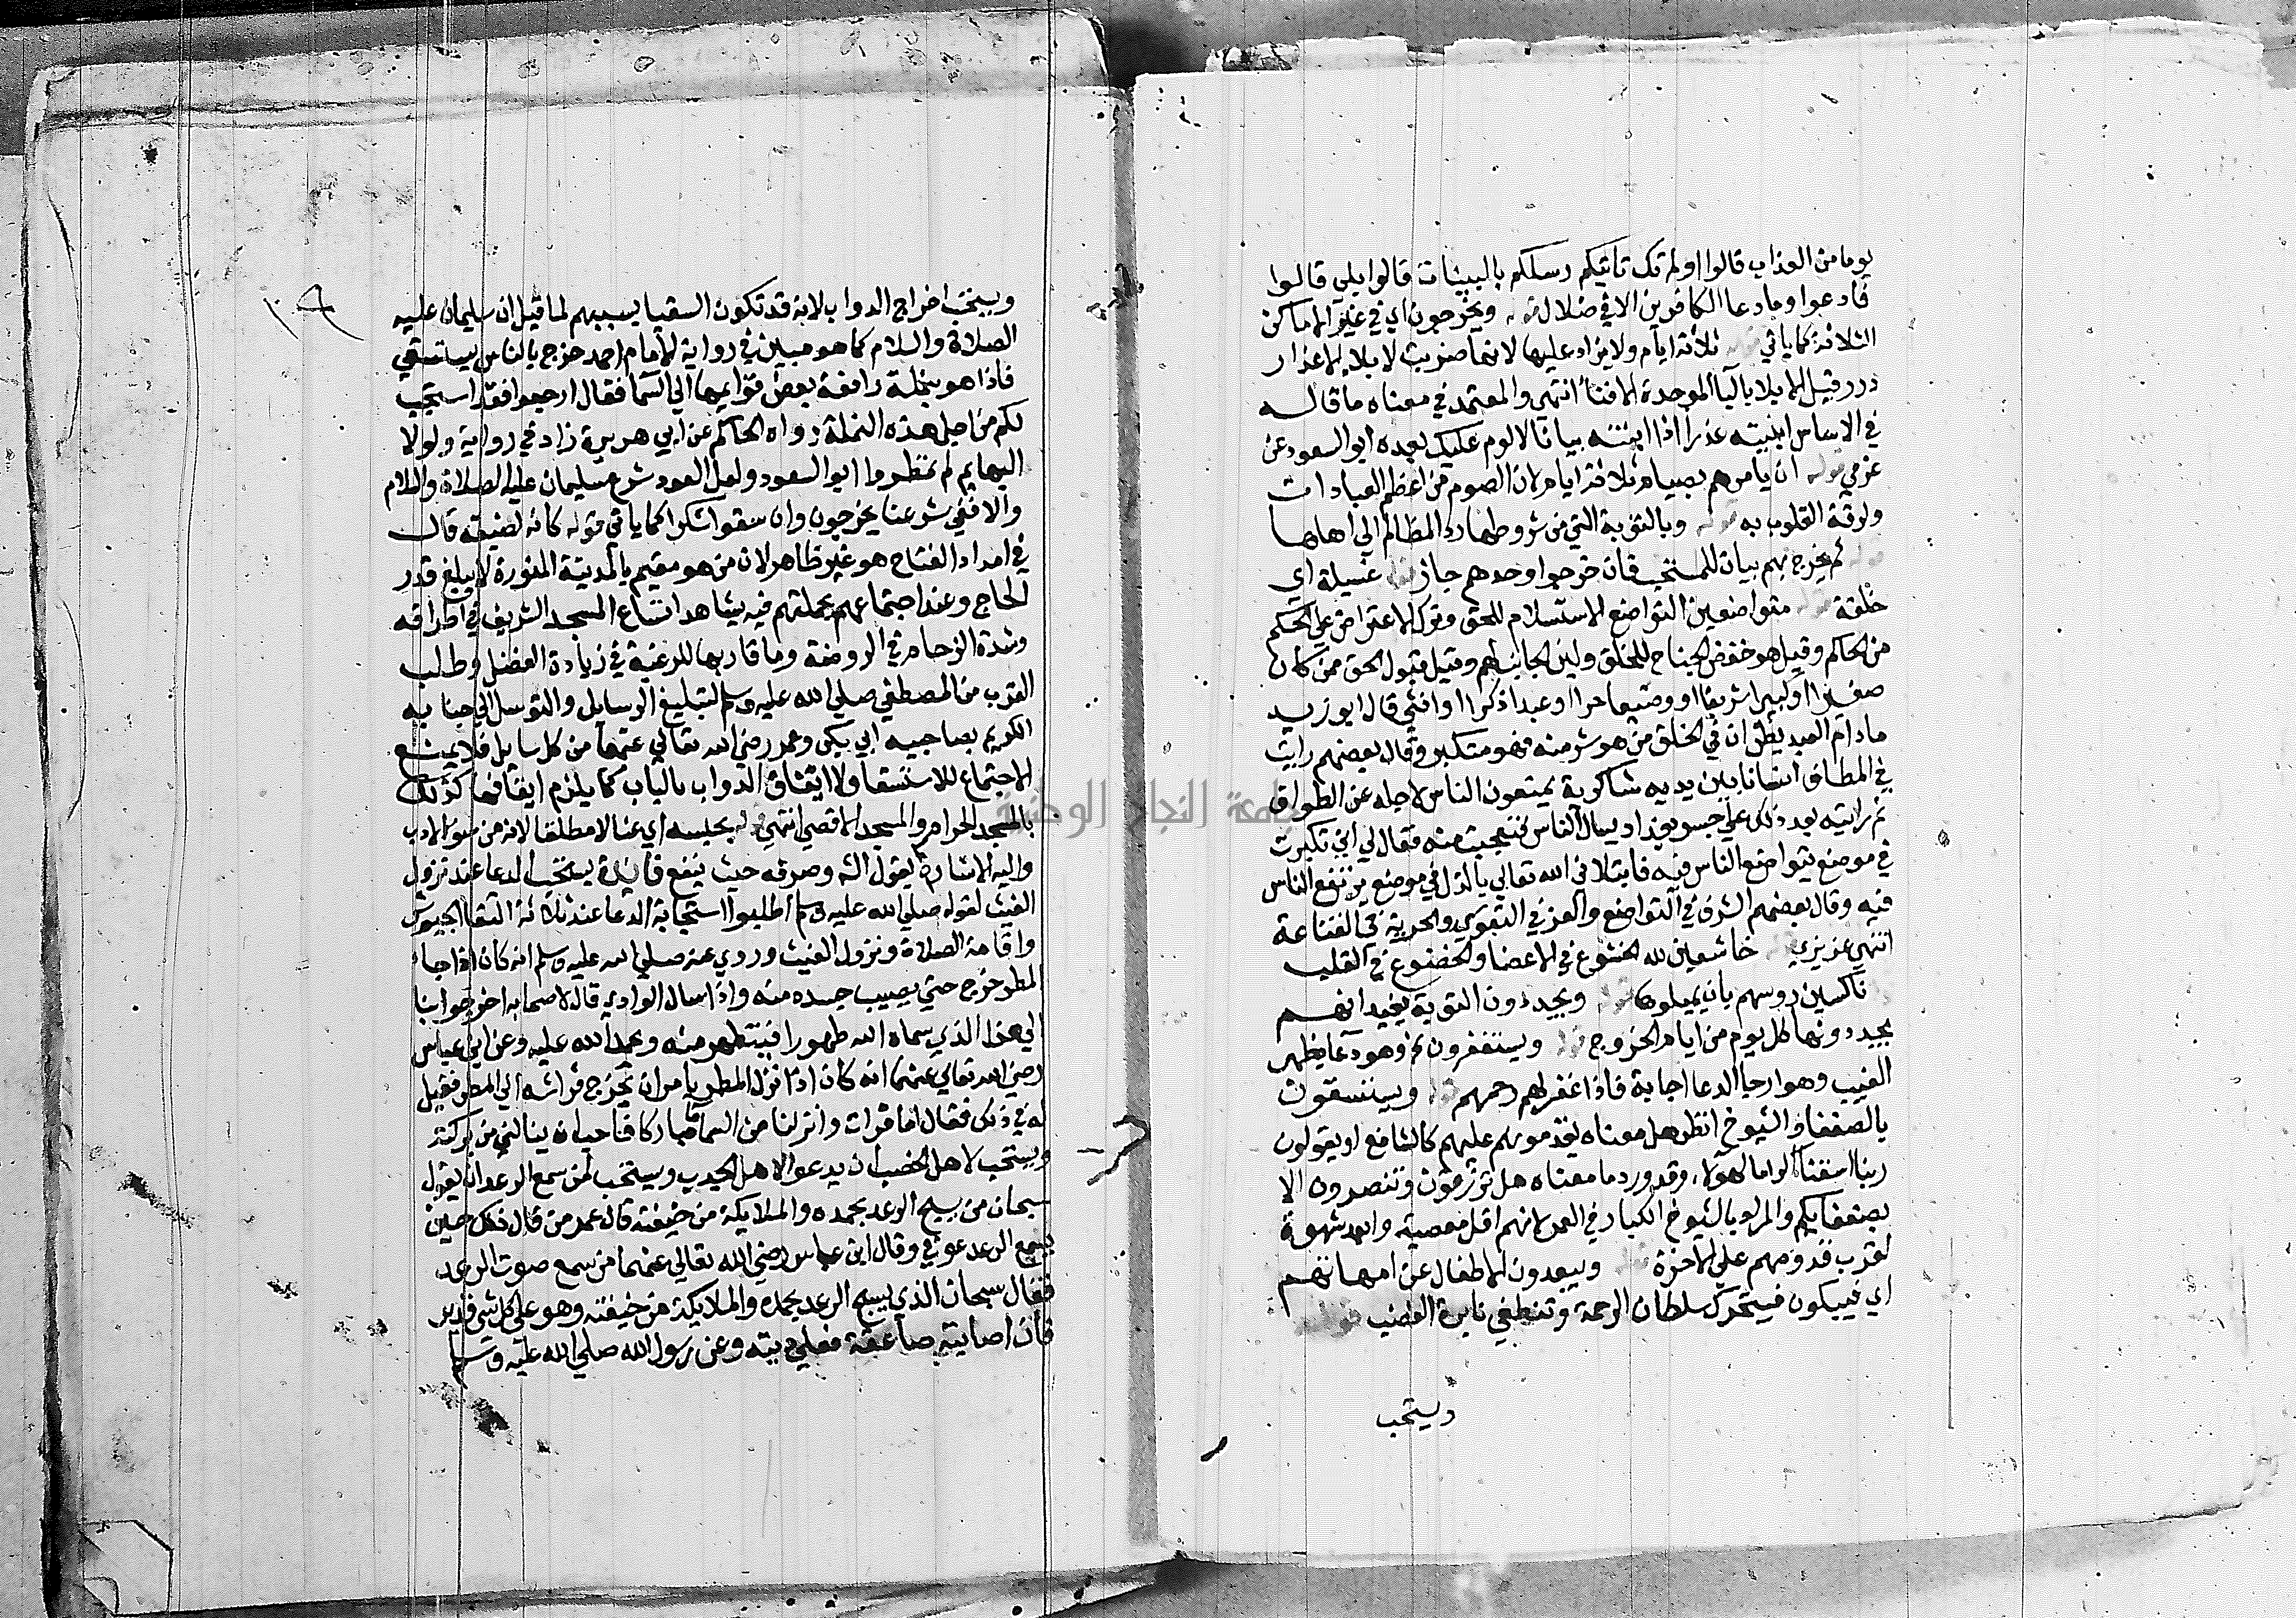 يوما من العذاب قالوا اولم تك تاتيكم رسلكم بالبينات قالوا بلى قالوا
فادعوا وما دعا الكافرين الا في ضلال قوله ويخرجون اي في غير الاماكن
الثلاثة كما ياتي قوله ثلاثة ايام ولا يزاد عليها لانها ضربت لابلاء الاعذار
درر وقيل الابلا بالباء الموحدة الافناء انتهى والمعتمد في معناه ما قاله
في الاساس ابليته عذرا اذا ابنته بيانا لا لوم عليك بعده ابو السعود عن
عزمي قوله ان يامرهم بصيام ثلاثة ايام لان الصوم من اعظم العبادات
ولرقة القلوب به قوله وبالتوبة التي من شروطها رد المظالم الى اهلها
قوله ثم يخرج بهم بيان للمستحب فان خرجوا وحدهم جاز قوله غسيلة اي
خلقة قوله متواضعين التواضع الاستسلام للحق وترك الاعتراض على الحكم
من الحاكم وقيل هو خفض الجناح للخلق ولين الجانب لهم وقيل قبول الحق ممن كان
صغيرا او كبيرا شريفا او وضيعا حرا او عبدا ذكرا او انثى قال ابو زيد
ما دام العبد يظن ان في الخلق من هو شر منه فهو متكبر وقال بعضهم رايت
في المطاف انسانا بين يديه شاكرية يمنعون الناس لاجله عن الطواف
ثم رايته بعد ذلك على جسر بغداد يسال الناس فتعجبت منه فقال لي اني تكبرت
في موضع يتواضع الناس فيه فابتلاني الله تعالى بالذل في موضع يرتفع الناس
فيه وقال بعضهم الشرف في التواضع والعز في التقوى والحرية في القناعة
انتهى عزيزي قوله خاشعين لله الخشوع في الاعضا والخضوع في القلب
ناكسين روسهم بان يميلوها قوله ويجددون التوبة يفيد انهم
يجددونها كل يوم من ايام الخروج قوله ويستغفرون وهو دعا بظهر
الغيب وهو ارجا الدعا اجابة فاذا غفر لهم رحمهم قوله ويستسقون
بالضعفا والشيوخ انظر هل معناه يقدمونهم عليهم كالشافع او يقولون
ربنا اسقنا اكراما لهولاء وقد ورد ما معناه هل ترزقون وتنصرون الا
بضعفايكم والمراد بالشيوخ الكبار في العمر لانهم اقل معصية وابعد شهوة
لقرب قدومهم على الاخرة قوله ويبعدون الاطفال عن امهاتهم
اي فيبكون فيتحرك سلطان الرحمة وتنطفي نايرة الغضب قوله
ويستحب
١٠٩
ويستحب اخراج الدواب لانه قد تكون السقيا بسببهم لما قيل ان سليمان عليه
الصلاة والسلام كما هو مبين في رواية الامام احمد خرج بالناس يستسقي
فاذا هو بنملة رافعة بعض قوايمها الى السما فقال ارجعوا فقد استجيب
لكم من اجل هذه النملة رواه الحاكم عن ابي هريرة زاد في رواية ولولا
البهايم لم تمطروا ابو السعود ولعل العود شرع سليمان عليه الصلاة والسلام
والا ففي شرعنا يخرجون وان سقوا شكرا كما ياتي قوله كانه لضيقه قال
في امداد الفتاح هو غير ظاهر لان من هو مقيم بالمدينة المنورة لا يبلغ قدر
الحاج وعند اجتماعهم بجملتهم فيه يشاهد اتساع المسجد الشريف في اطرافه
وشدة الزحام في الروضة وما قاربها للرغبة في زيادة الفضل وطلب
القرب من المصطفى صلى الله عليه وسلم لتبليغ الرسايل والتوسل الى جنابه
الكريم بصاحبيه ابي بكر وعمر رضي الله تعالى عنهما من كل سايل فلا يمتنع
الاجتماع للاستسقا ولا ايقاف الدواب بالباب كما يلزم ايقافها كذلك
بالمسجد الحرام والمسجد الاقصى انتهى قوله بحبسه اي عنا لا مطلقا لانه من سوء الادب
واليه الاشارة بقول الش وصرفه حيث ينفع فايدة يستحب الدعا عند نزول
الغيث لقوله صلى الله عليه وسلم اطلبوا استجابة الدعا عند ثلاثة التقا الجيوش
واقامة الصلاة ونزول الغيث وروي عنه صلى الله عليه وسلم انه كان اذا جاء
المطر خرج حتى يصيب جسده منه واذا سال الوادي قال لاصحابه اخرجوا بنا
الى هذا الذي سماه الله طهورا فنتطهر منه ونحمد الله عليه وعن ابن عباس
رضي الله تعالى عنهما انه كان اذا نزل المطر يامر ان يخرج فراشه الى المطر فقيل
له في ذلك فقال اما قرات وانزلنا من السما ماء مباركا فاحب ان ينالني من بركته
ويستحب لاهل الخصب ان يدعوا لاهل الجدب ويستحب لمن سمع الرعد ان يقول
سبحان من يسبح الرعد بحمده والملايكة من خيفته قال عمر من قال ذلك حين
يسمع الرعد عوفي وقال ابن عباس رضي الله تعالى عنهما من سمع صوت الرعد
فقال سبحان الذي يسبح الرعد بحمده والملايكة من خيفته وهو على كل شي قدير
فان اصابته صاعقة فعلي ديته وعن رسول الله صلى الله عليه وسلم
جامعة النجاح الوطنية